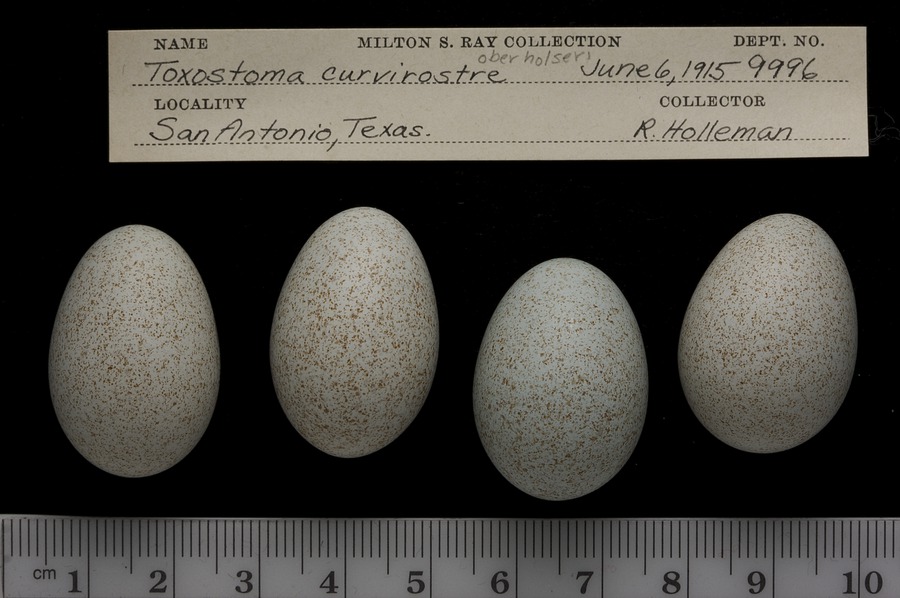 NAME MILTON S. RAY COLLECTION DEPT. NO.
oberholseri
Toxostoma curvirostre June 6, 1915 9996
LOCALITY COLLECTOR
San Antonio, Texas. R. Holleman
cm 1 2 3 4 5 6 7 8 9 10